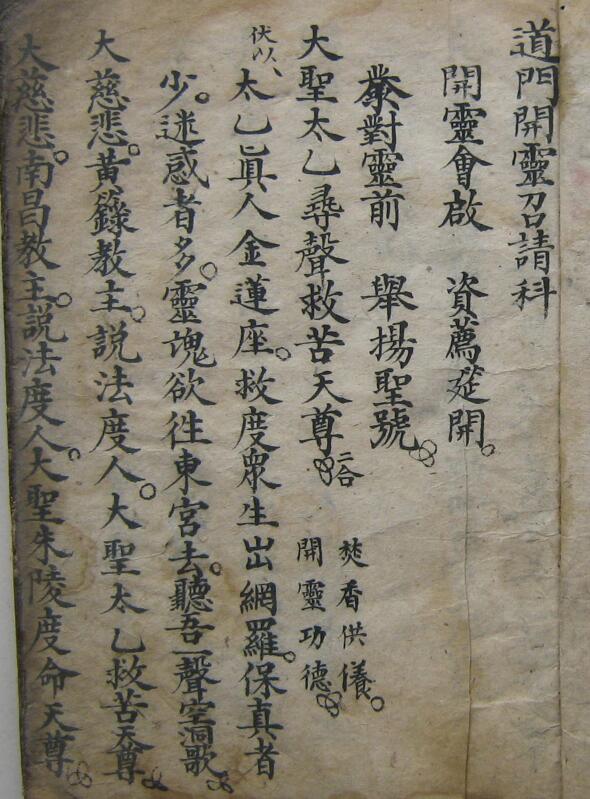 道門開靈召請科
開靈會啟　資薦筵開。
爇對靈前　舉揚聖號。
大聖太乙尋聲救苦天尊 二合 焚香供儀。開靈功德
伏以、
太乙眞人金蓮座。救度衆生出網羅。保真者
少。迷惑者多。靈魂欲往東宮去。聽吾一聲空洞歌
大慈悲。黃籙教主。說法度人。大聖太乙救苦天尊
大慈悲。南昌教主。說法度人。大聖朱陵度命天尊